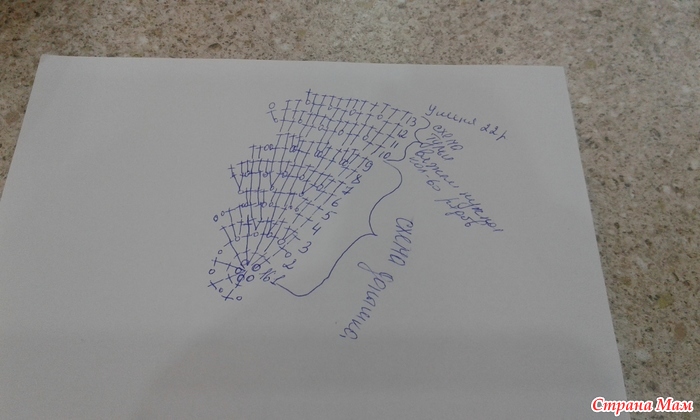 У меня 22 р
схема
тульи
вяжем нужное
кол-во рядов
13
12
11
10
9
8
7
6
5
4
3
2
1
16
схема донышка,
Страна Мам